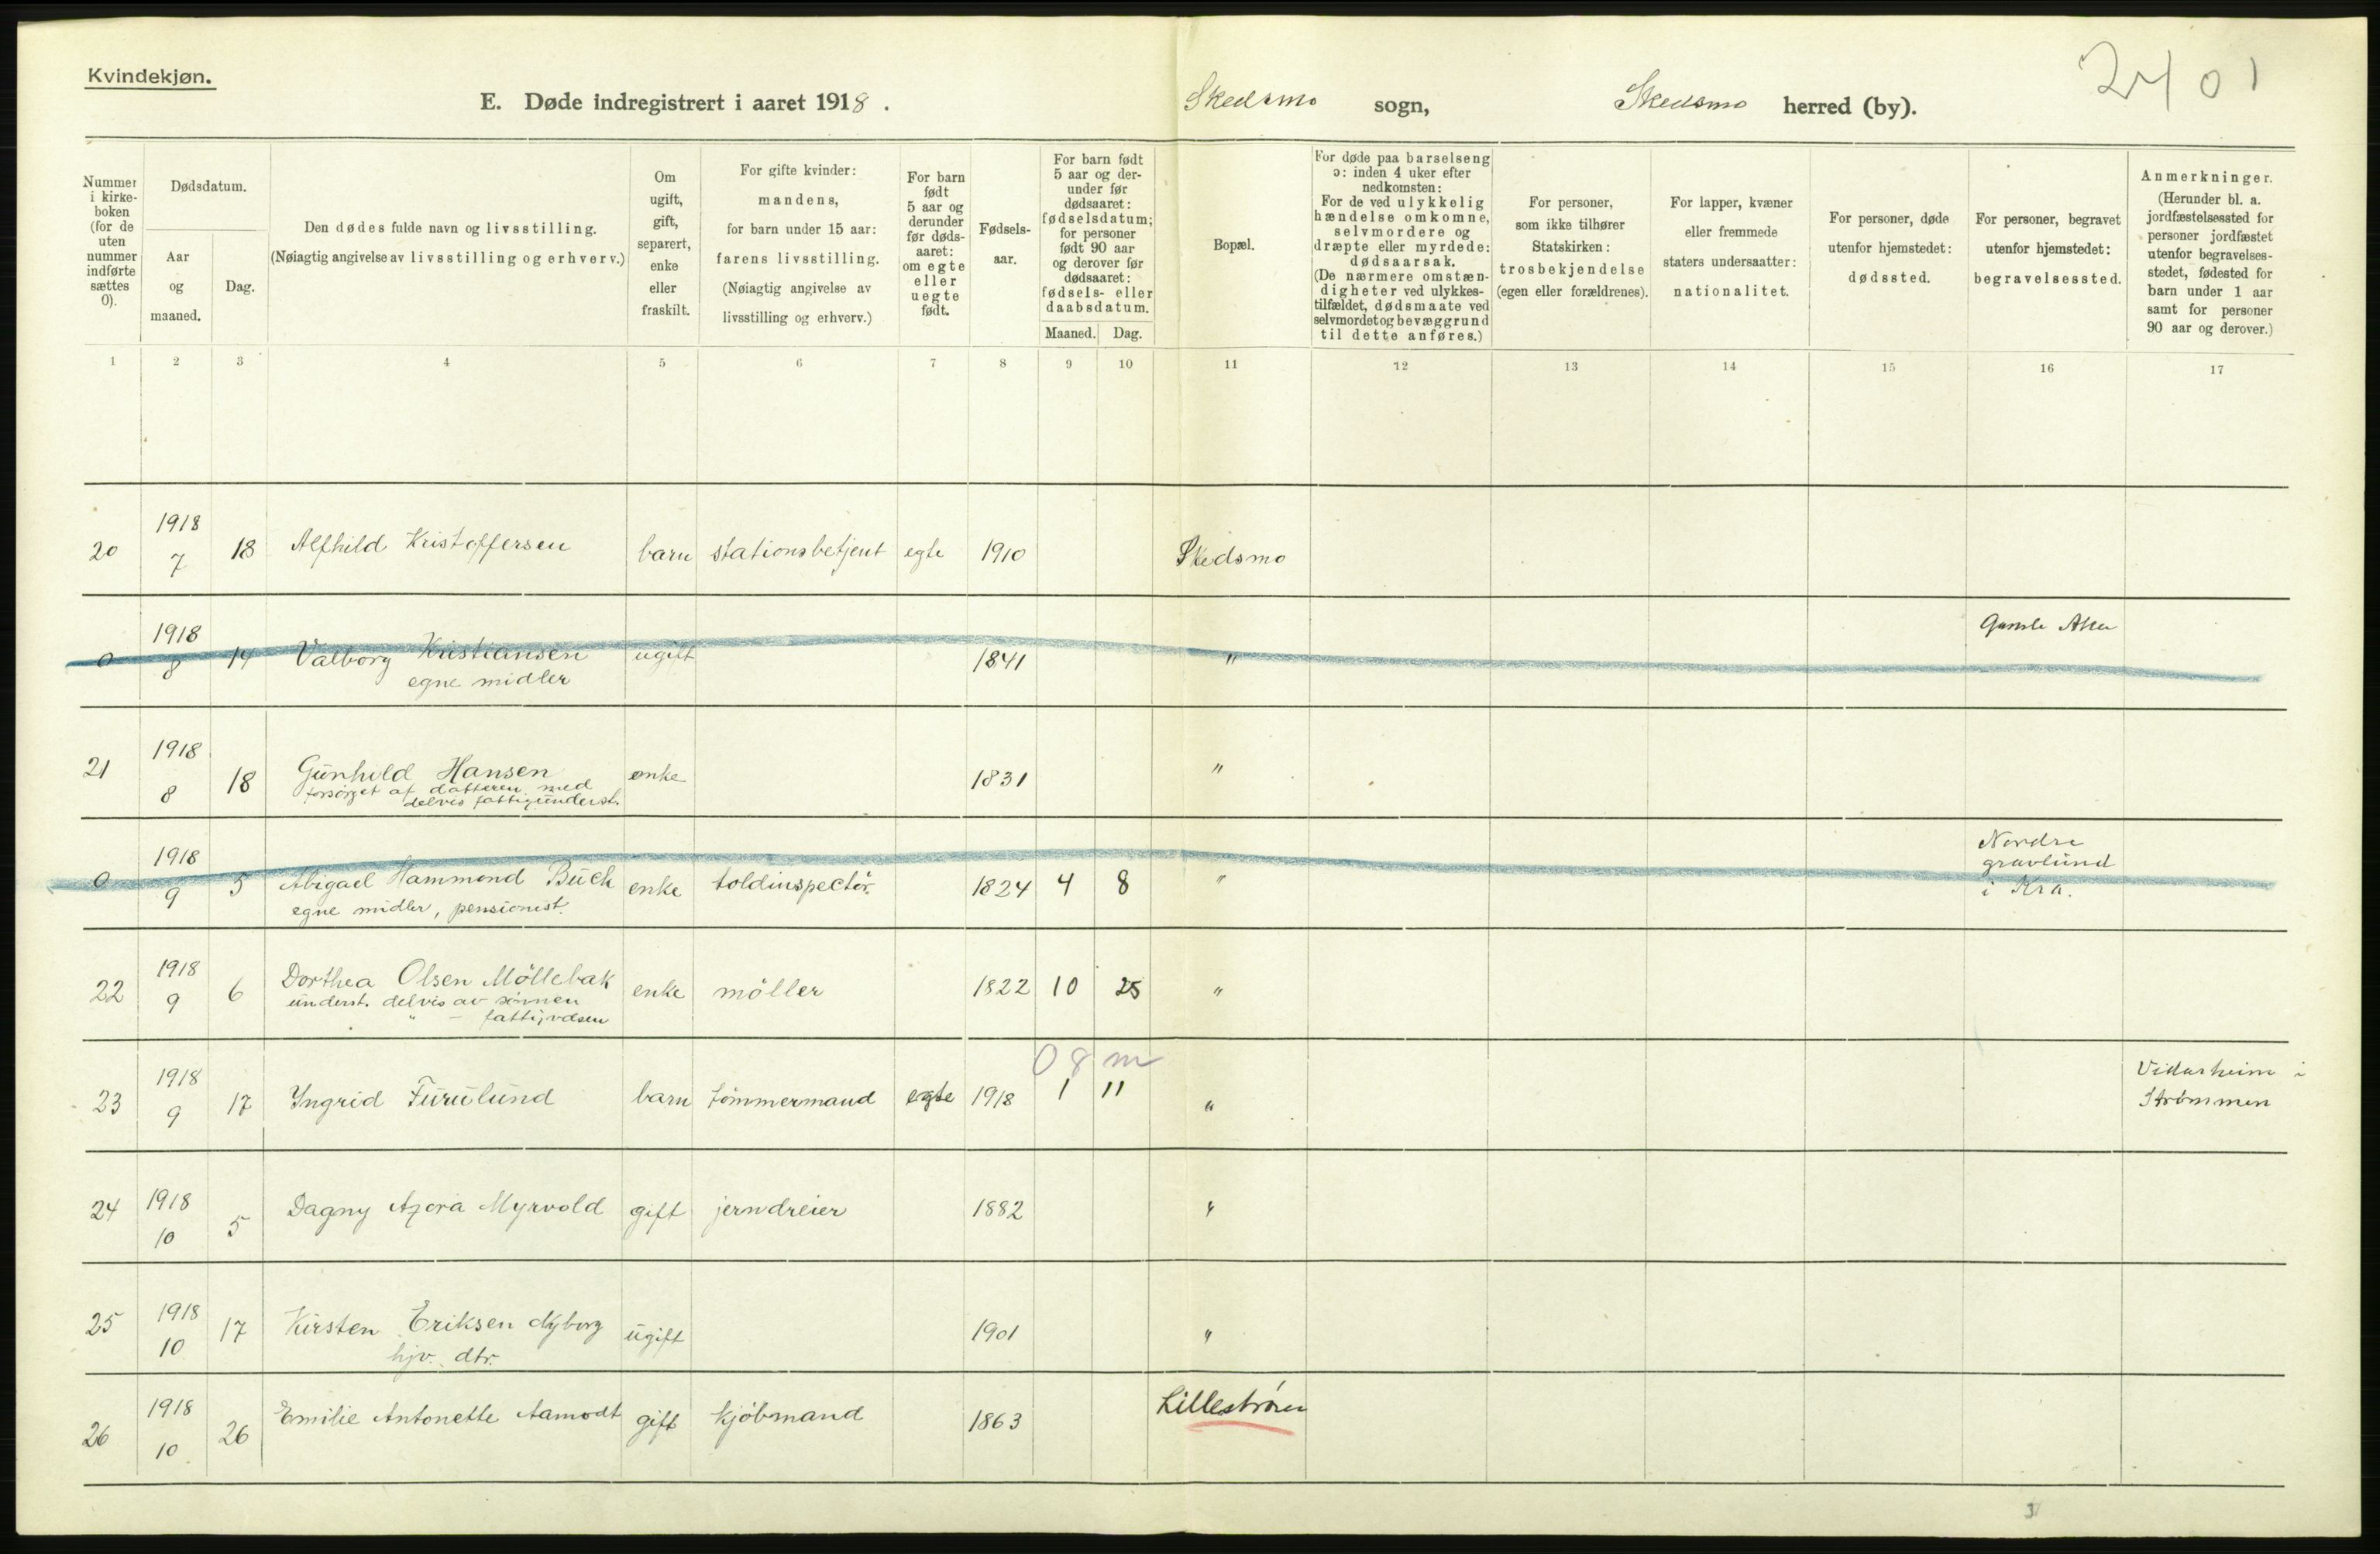 Kvindekjøn.
2401
E. Døde indregistrert i aaret 1918. Skedsmo sogn, Skedsmo herred (by).
Nummer i kirke- boken (for de uten nummer indførte sættes 0).
Dødsdatum.
Aar og maaned.
Dag.
Den dødes fulde navn og livsstilling.
(Nøiagtig angivelse av livsstilling og erhverv.)
Om ugift, gift, separert, enke eller fraskilt.
For gifte kvinder: mandens, for barn under 15 aar: farens livsstilling. (Nøiagtig angivelse av livsstilling og erhverv.)
For barn født 5 aar og derunder før døds- aaret: om egte eller uegte født.
Fødsels- aar.
For barn født 5 aar og der- under før dødsaaret: fødselsdatum; for personer født 90 aar og derover før dødsaaret: fødsels- eller daabsdatum.
Maaned. Dag.
Bopæl.
For døde paa barselseng ɔ: inden 4 uker efter nedkomsten: For de ved ulykkelig hændelse omkomne, selvmordere og dræpte eller myrdede: dødsaarsak. (De nærmere omstæn- digheter ved ulykkes- tilfældet, dødsmaate ved selvmordet og bevæggrund til dette anføres.)
For personer, som ikke tilhører Statskirken: trosbekjendelse (egen eller forældrenes).
For lapper, kvæner eller fremmede staters undersaatter: nationalitet.
For personer, døde utenfor hjemstedet: dødssted.
For personer, begravet utenfor hjemstedet: begravelsessted.
Anmerkninger. (Herunder bl. a. jordfæstelsessted for personer jordfæstet utenfor begravelses- stedet, fødested for barn under 1 aar samt for personer 90 aar og derover.)
1 2 3 4 5 6 7 8 9 10 11 12 13 14 15 16 17
20 1918 7 18 Alfhild Kristoffersen barn stationsbetjent egte 1910 Skedsmo
0 1918 8 14 Valborg Kristiansen ugift 1841 " Gamle Aker
egne midler
21 1918 8 18 Gunhild Hansen enke 1831 "
forsørget af datteren med
delvis fattigunderst.
0 1918 9 5 Abigael Hammond Buch enke toldinspectör 1824 4 8 " Nordre gravlund i Kra.
egne midler, pensionist.
22 1918 9 6 Dorthea Olsen Möllebak enke möller 1822 10 25 "
underst. delvis av sönnen
" — fattigvdsen
0 8 m
23 1918 9 17 Yngrid Furulund barn tömmermand egte 1918 1 11 " Vidarheim i Strömmen
24 1918 10 5 Dagny Azora Myrvold gift jerndreier 1882 "
25 1918 10 17 Kirsten Eriksen Nyborg ugift 1901 "
hjv. dtr.
26 1918 10 26 Emilie Antonette Aamodt gift kjöbmand 1863 Lillestrøm
3